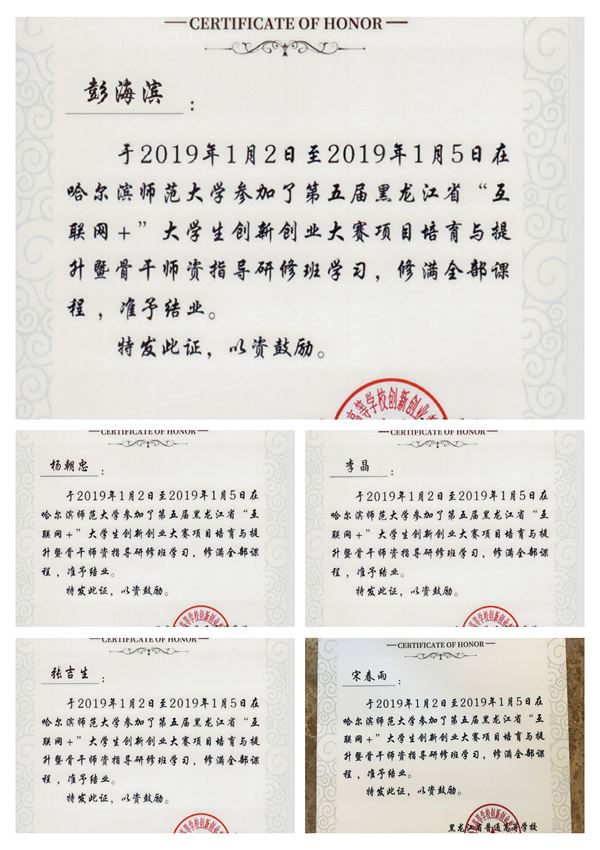 CERTIFICATE OF HONOR
彭海滨：
于2019年1月2日至2019年1月5日在
哈尔滨师范大学参加了第五届黑龙江省“互
联网+”大学生创新创业大赛项目培育与提
升暨骨干师资指导研修班学习，修满全部课
程，准予结业。
特发此证，以资鼓励。
高等学校创新创业
CERTIFICATE OF HONOR
杨朝忠：
于2019年1月2日至2019年1月5日在
哈尔滨师范大学参加了第五届黑龙江省“互
联网+”大学生创新创业大赛项目培育与提
升暨骨干师资指导研修班学习，修满全部课
程，准予结业。
特发此证，以资鼓励。
高等学校创新创业
CERTIFICATE OF HONOR
李晶：
于2019年1月2日至2019年1月5日在
哈尔滨师范大学参加了第五届黑龙江省“互
联网+”大学生创新创业大赛项目培育与提
升暨骨干师资指导研修班学习，修满全部课
程，准予结业。
特发此证，以资鼓励。
等学校创新创业
CERTIFICATE OF HONOR
张吉生：
于2019年1月2日至2019年1月5日在
哈尔滨师范大学参加了第五届黑龙江省“互
联网+”大学生创新创业大赛项目培育与提
升暨骨干师资指导研修班学习，修满全部课
程，准予结业。
特发此证，以资鼓励。
等学校创新创业
CERTIFICATE OF HONOR
宋春雨：
于2019年1月2日至2019年1月5日在
哈尔滨师范大学参加了第五届黑龙江省“互
联网+”大学生创新创业大赛项目培育与提
升暨骨干师资指导研修班学习，修满全部课
程，准予结业。
特发此证，以资鼓励。
黑龙江省普通高等学校